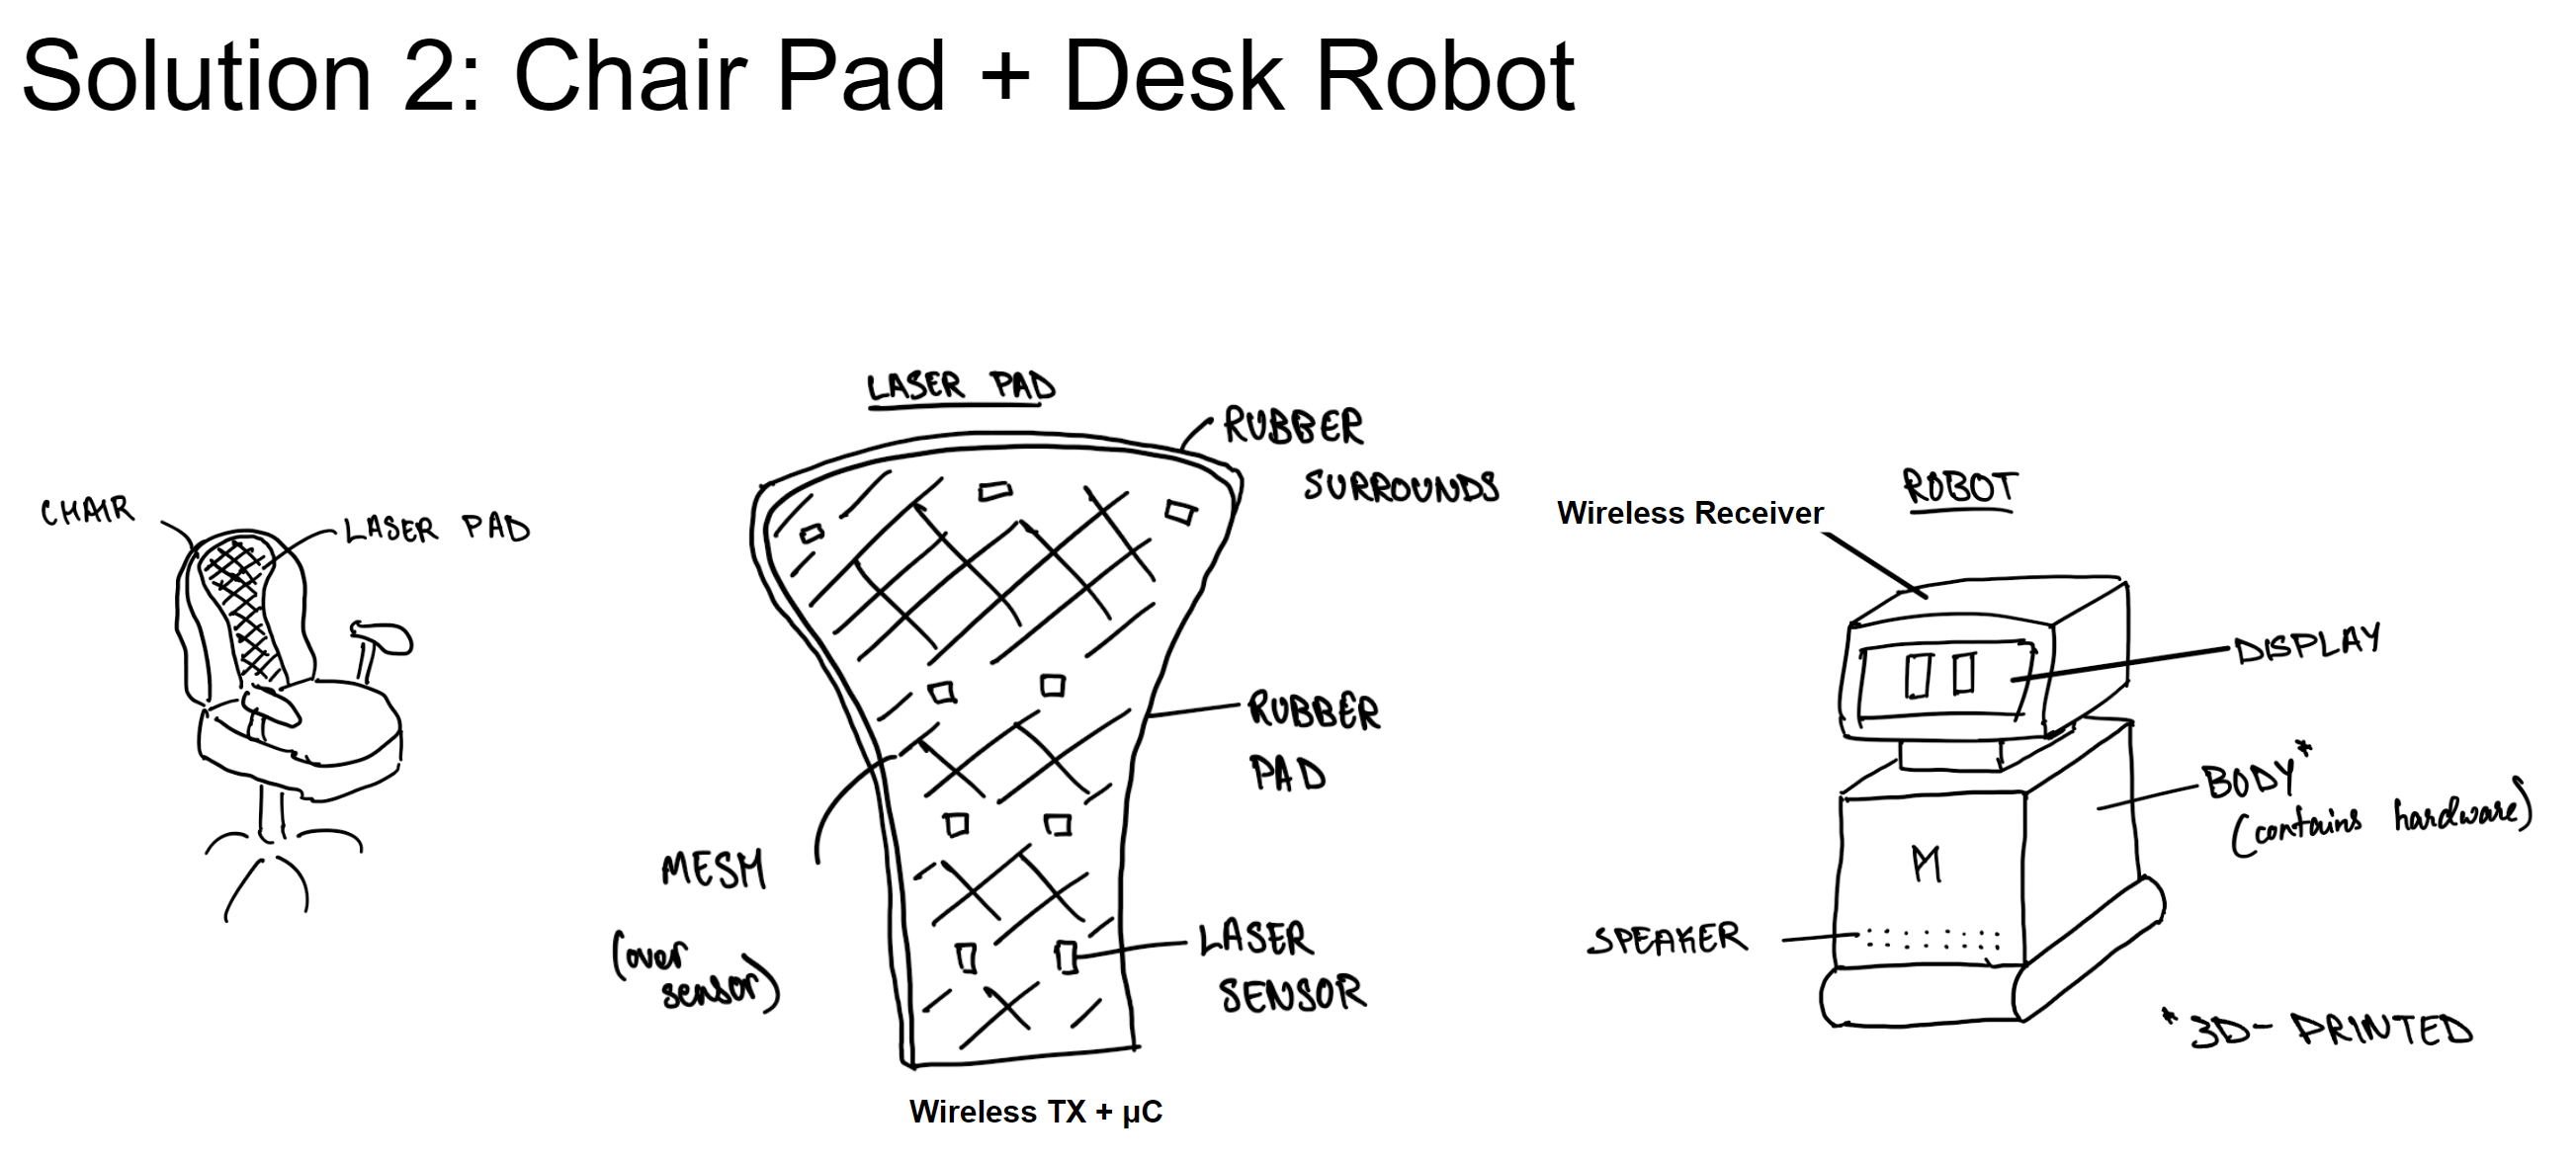 Solution 2: Chair Pad + Desk Robot
CHAIR
LASER PAD
LASER PAD
RUBBER
SURROUNDS
RUBBER
PAD
MESH
(over
sensor)
LASER
SENSOR
Wireless TX + µC
ROBOT
Wireless Receiver
DISPLAY
BODY*
(contains hardware)
M
SPEAKER
* 3D- PRINTED